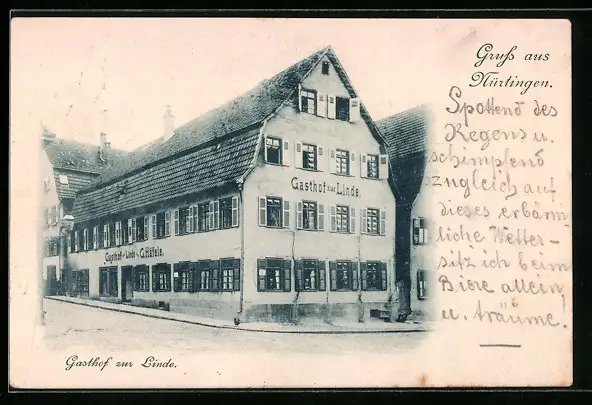 Gruß aus
Nürtingen.
Spottend des
Regens u.
schimpfend
zugleich auf
dieses erbärm-
liche Wetter-
sitz ich beim
Biere allein,
u. träume!
Gasthof zur Linde.
Gasthof zur Linde v. G. Häfele.
Gasthof zur Linde.